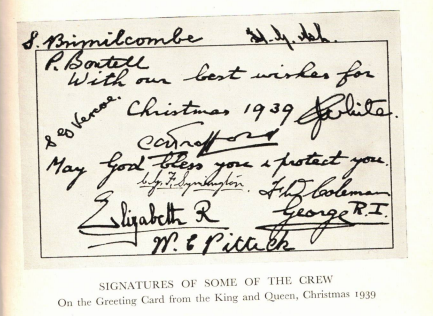 S. Brimilcombe
H. G. Ash.
P. Bontell
With our best wishes for
Christmas 1939
White.
S G Vercoe.
May God bless you & protect you.
C. J. F. Symington
F W Coleman
Elizabeth R
George R.I.
W. E Pittick
SIGNATURES OF SOME OF THE CREW
On the Greeting Card from the King and Queen, Christmas 1939